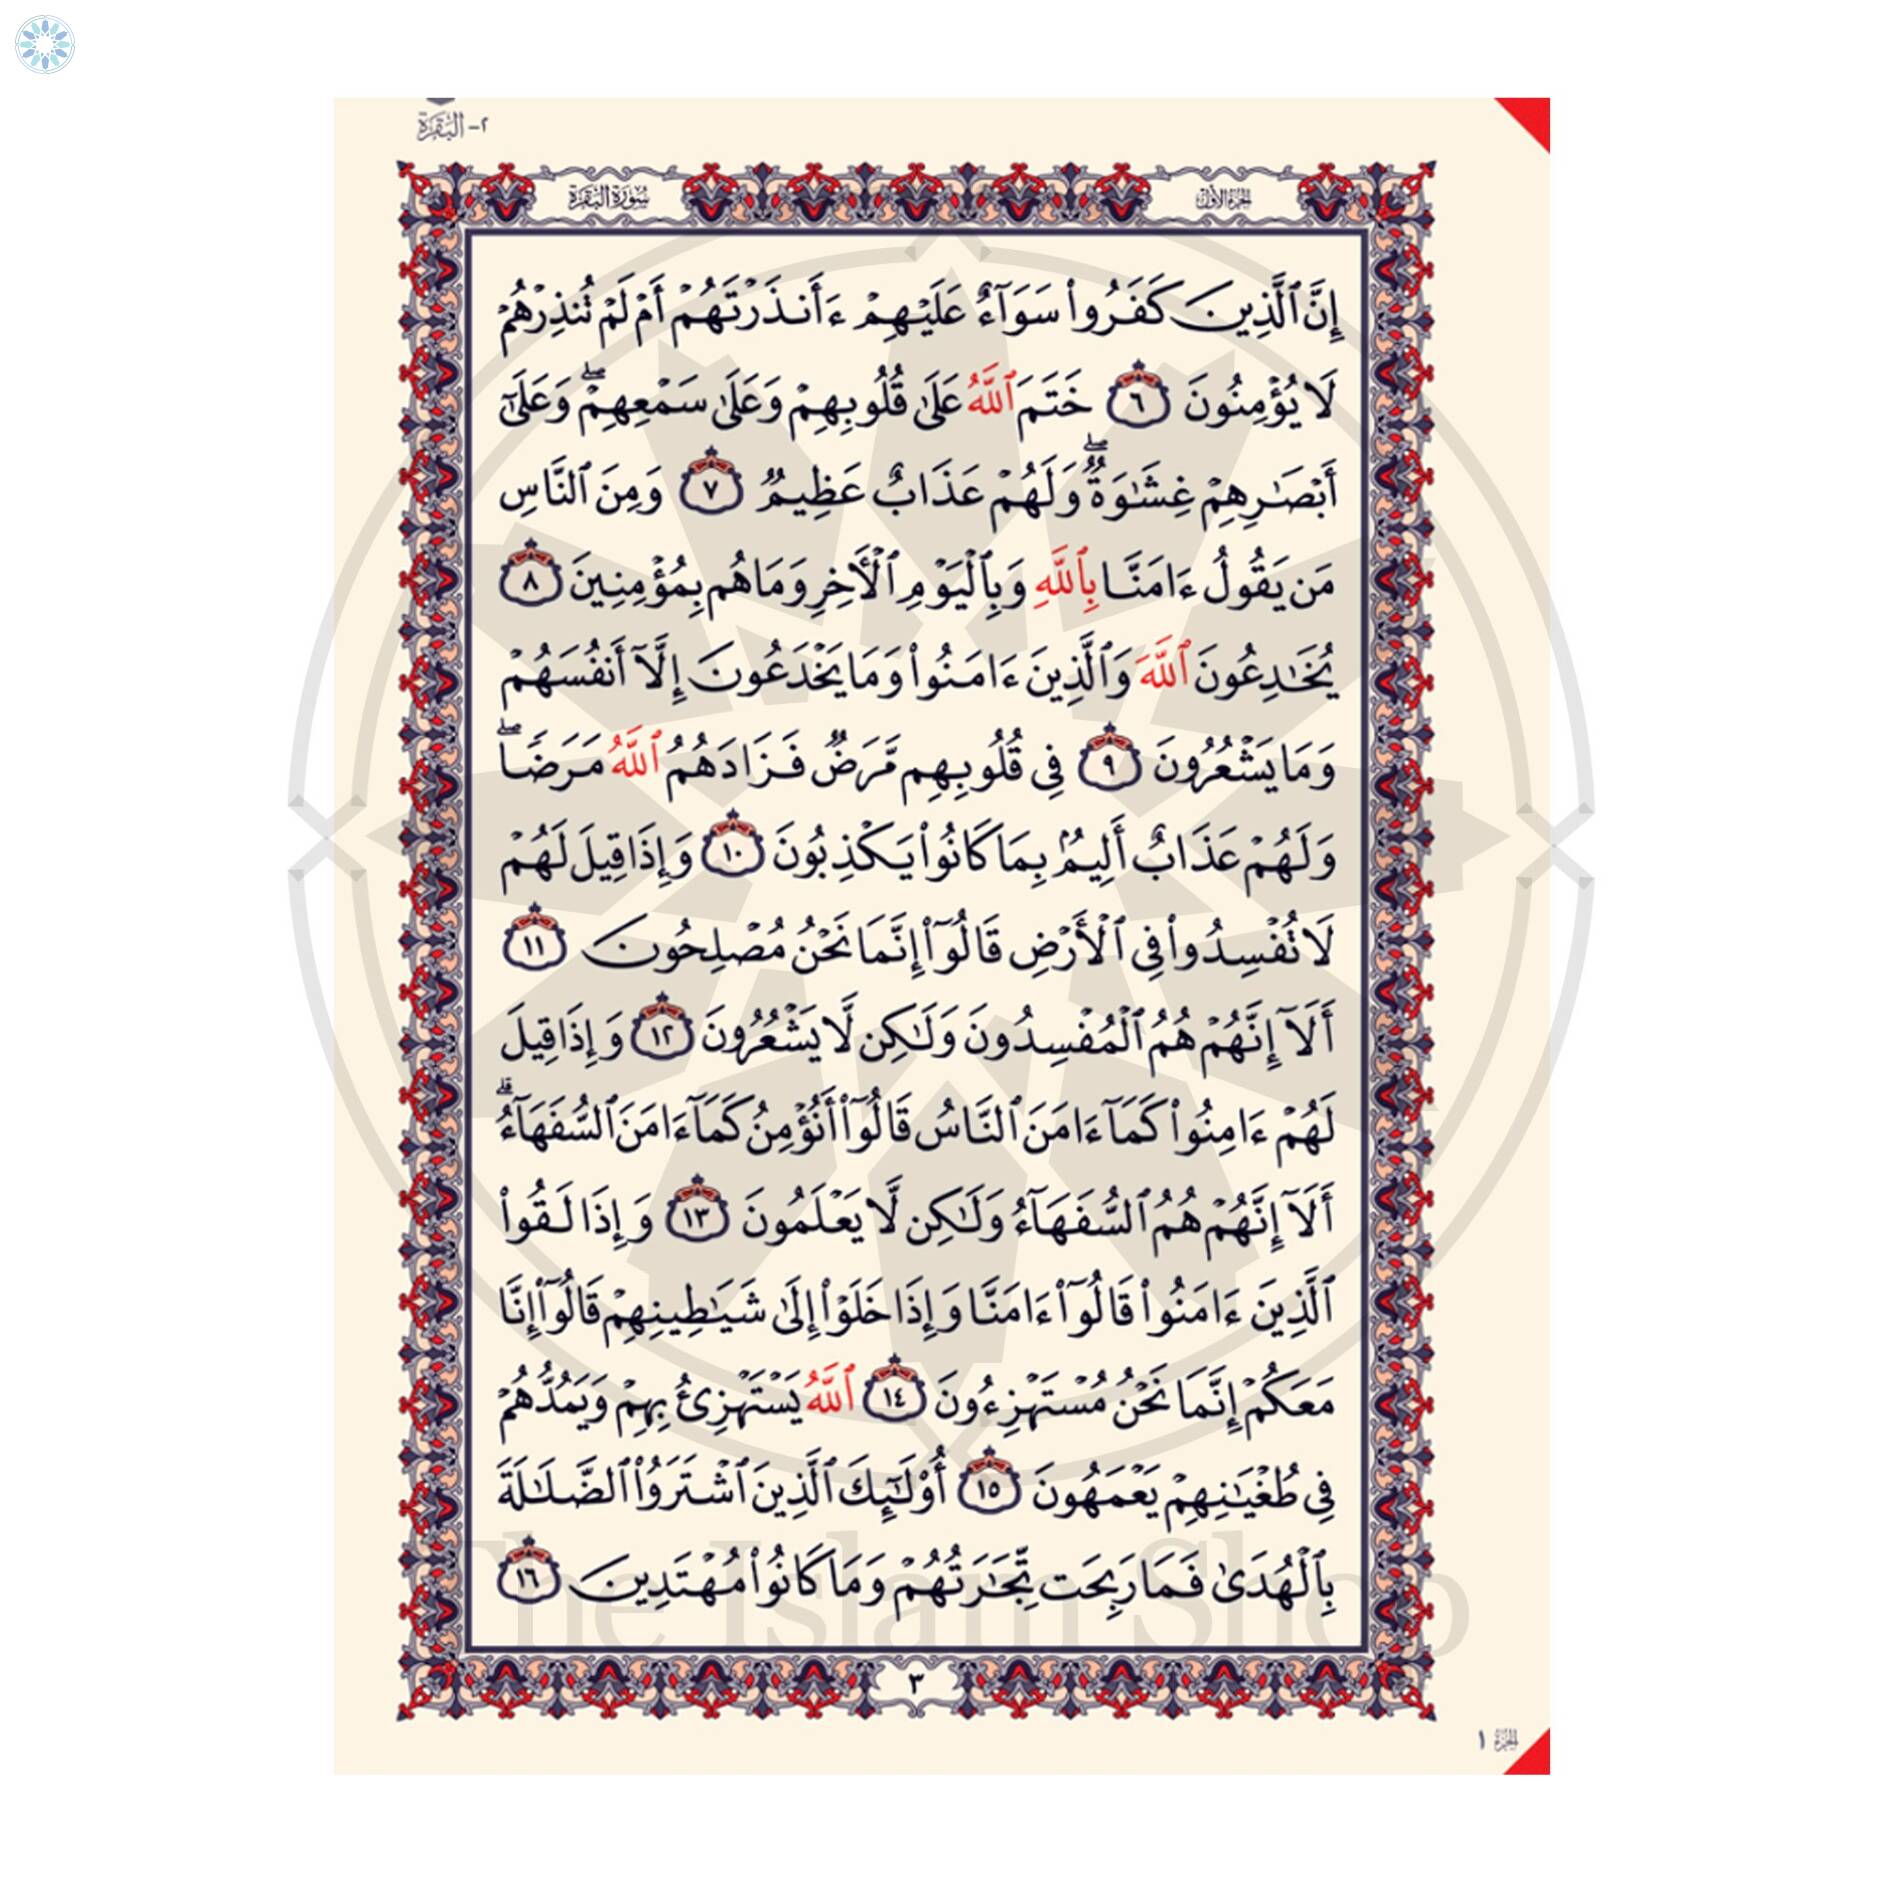 ٢- البقرة
الجزء الأول
سورة البقرة
إِنَّ ٱلَّذِينَ كَفَرُوا۟ سَوَآءٌ عَلَيْهِمْ ءَأَنذَرْتَهُمْ أَمْ لَمْ تُنذِرْهُمْ
لَا يُؤْمِنُونَ ٦ خَتَمَ ٱللَّهُ عَلَىٰ قُلُوبِهِمْ وَعَلَىٰ سَمْعِهِمْ ۖ وَعَلَىٰٓ
أَبْصَـٰرِهِمْ غِشَـٰوَةٌ ۖ وَلَهُمْ عَذَابٌ عَظِيمٌ ٧ وَمِنَ ٱلنَّاسِ
مَن يَقُولُ ءَامَنَّا بِٱللَّهِ وَبِٱلْيَوْمِ ٱلْـَٔاخِرِ وَمَا هُم بِمُؤْمِنِينَ ٨
يُخَـٰدِعُونَ ٱللَّهَ وَٱلَّذِينَ ءَامَنُوا۟ وَمَا يَخْدَعُونَ إِلَّآ أَنفُسَهُمْ
وَمَا يَشْعُرُونَ ٩ فِى قُلُوبِهِم مَّرَضٌ فَزَادَهُمُ ٱللَّهُ مَرَضًا ۖ
وَلَهُمْ عَذَابٌ أَلِيمٌۢ بِمَا كَانُوا۟ يَكْذِبُونَ ١٠ وَإِذَا قِيلَ لَهُمْ
لَا تُفْسِدُوا۟ فِى ٱلْأَرْضِ قَالُوٓا۟ إِنَّمَا نَحْنُ مُصْلِحُونَ ١١
أَلَآ إِنَّهُمْ هُمُ ٱلْمُفْسِدُونَ وَلَـٰكِن لَّا يَشْعُرُونَ ١٢ وَإِذَا قِيلَ
لَهُمْ ءَامِنُوا۟ كَمَآ ءَامَنَ ٱلنَّاسُ قَالُوٓا۟ أَنُؤْمِنُ كَمَآ ءَامَنَ ٱلسُّفَهَآءُ ۗ
أَلَآ إِنَّهُمْ هُمُ ٱلسُّفَهَآءُ وَلَـٰكِن لَّا يَعْلَمُونَ ١٣ وَإِذَا لَقُوا۟
ٱلَّذِينَ ءَامَنُوا۟ قَالُوٓا۟ ءَامَنَّا وَإِذَا خَلَوْا۟ إِلَىٰ شَيَـٰطِينِهِمْ قَالُوٓا۟ إِنَّا
مَعَكُمْ إِنَّمَا نَحْنُ مُسْتَهْزِءُونَ ١٤ ٱللَّهُ يَسْتَهْزِئُ بِهِمْ وَيَمُدُّهُمْ
فِى طُغْيَـٰنِهِمْ يَعْمَهُونَ ١٥ أُو۟لَـٰٓئِكَ ٱلَّذِينَ ٱشْتَرَوُا۟ ٱلضَّلَـٰلَةَ
بِٱلْهُدَىٰ فَمَا رَبِحَت تِّجَـٰرَتُهُمْ وَمَا كَانُوا۟ مُهْتَدِينَ ١٦
The Islam Shop
٣
الجزء ١